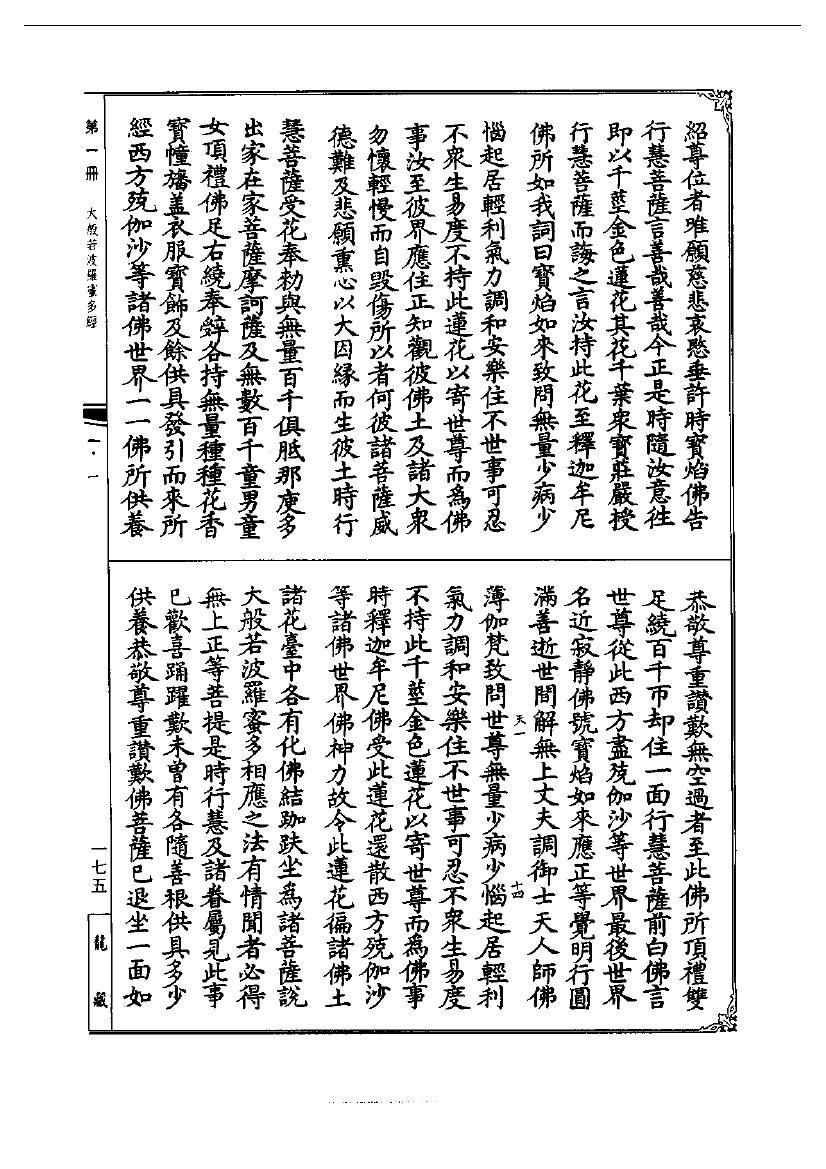 紹尊位者唯願慈悲哀愍垂許時寶焰佛告
行慧菩薩言善哉善哉今正是時隨汝意往
即以千莖金色蓮花其花千葉衆寶莊嚴授
行慧菩薩而誨之言汝持此花至釋迦牟尼
佛所如我詞曰寶焰如來致問無量少病少
惱起居輕利氣力調和安樂住不世事可忍
不衆生易度不持此蓮花以寄世尊而為佛
事汝至彼界應住正知觀彼佛土及諸大衆
勿懷輕慢而自毀傷所以者何彼諸菩薩威
德難及悲願熏心以大因緣而生彼土時行
慧菩薩受花奉勅與無量百千俱胝那庾多
出家在家菩薩摩訶薩及無數百千童男童
女頂禮佛足右繞奉辤各持無量種種花香
寶幢旛盖衣服寶飾及餘供具發引而來所
經西方殑伽沙等諸佛世界一一佛所供養
恭敬尊重讃歎無空過者至此佛所頂禮雙
足繞百千帀却住一面行慧菩薩前白佛言
世尊從此西方盡殑伽沙等世界最後世界
名近寂靜佛號寶焰如來應正等覺明行圓
滿善逝世間解無上丈夫調御士天人師佛
天一
十四
薄伽梵致問世尊無量少病少惱起居輕利
氣力調和安樂住不世事可忍不衆生易度
不持此千莖金色蓮花以寄世尊而為佛事
時釋迦牟尼佛受此蓮花還散西方殑伽沙
等諸佛世界佛神力故令此蓮花徧諸佛土
諸花臺中各有化佛結跏趺坐為諸菩薩說
大般若波羅蜜多相應之法有情聞者必得
無上正等菩提是時行慧及諸眷屬見此事
已歡喜踊躍歎未曾有各隨善根供具多少
供養恭敬尊重讃歎佛菩薩已退坐一面如
第一冊 大般若波羅蜜多經
一·一
一七五
龍藏